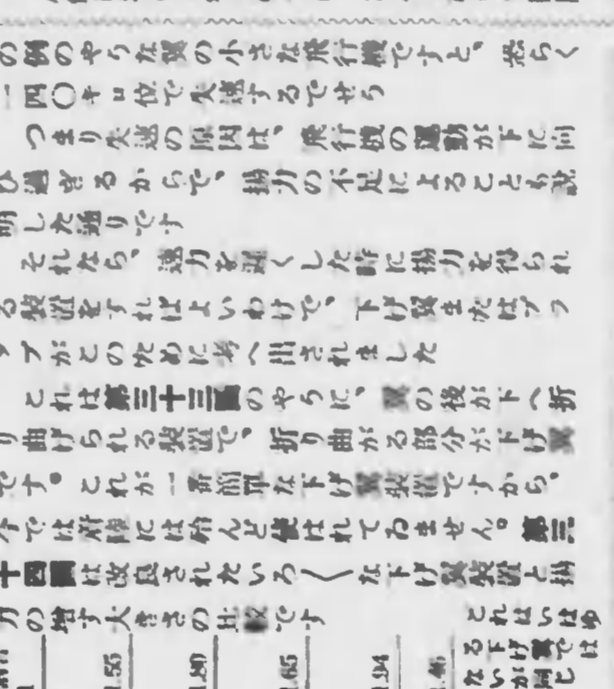 の例のやうな翼の小さな飛行機ですと、恐らく
一四〇キロ位で失速するでせう
つまり失速の原因は、飛行機の運動が下に向
ひ過ぎるからで、揚力の不足によることも説
明した通りです
それなら、速力を遅くした時に揚力を得られ
る装置をすればよいわけで、下げ翼またはフラ
ップがこのために考へ出されました
これは第三十三圖のやうに、翼の後が下へ折
り曲げられる装置で、折り曲がる部分が下げ翼
です。これが一番簡単な下げ翼装置ですから、
今では着陸には殆んど使はれてゐません。第三
十四圖は改良されたいろ〱な下げ翼装置と揚
力の増す大きさの比較です
これはいはゆ
る下げ翼では
ないが同じ
1.55
1.80
1.65
1.94
1.46